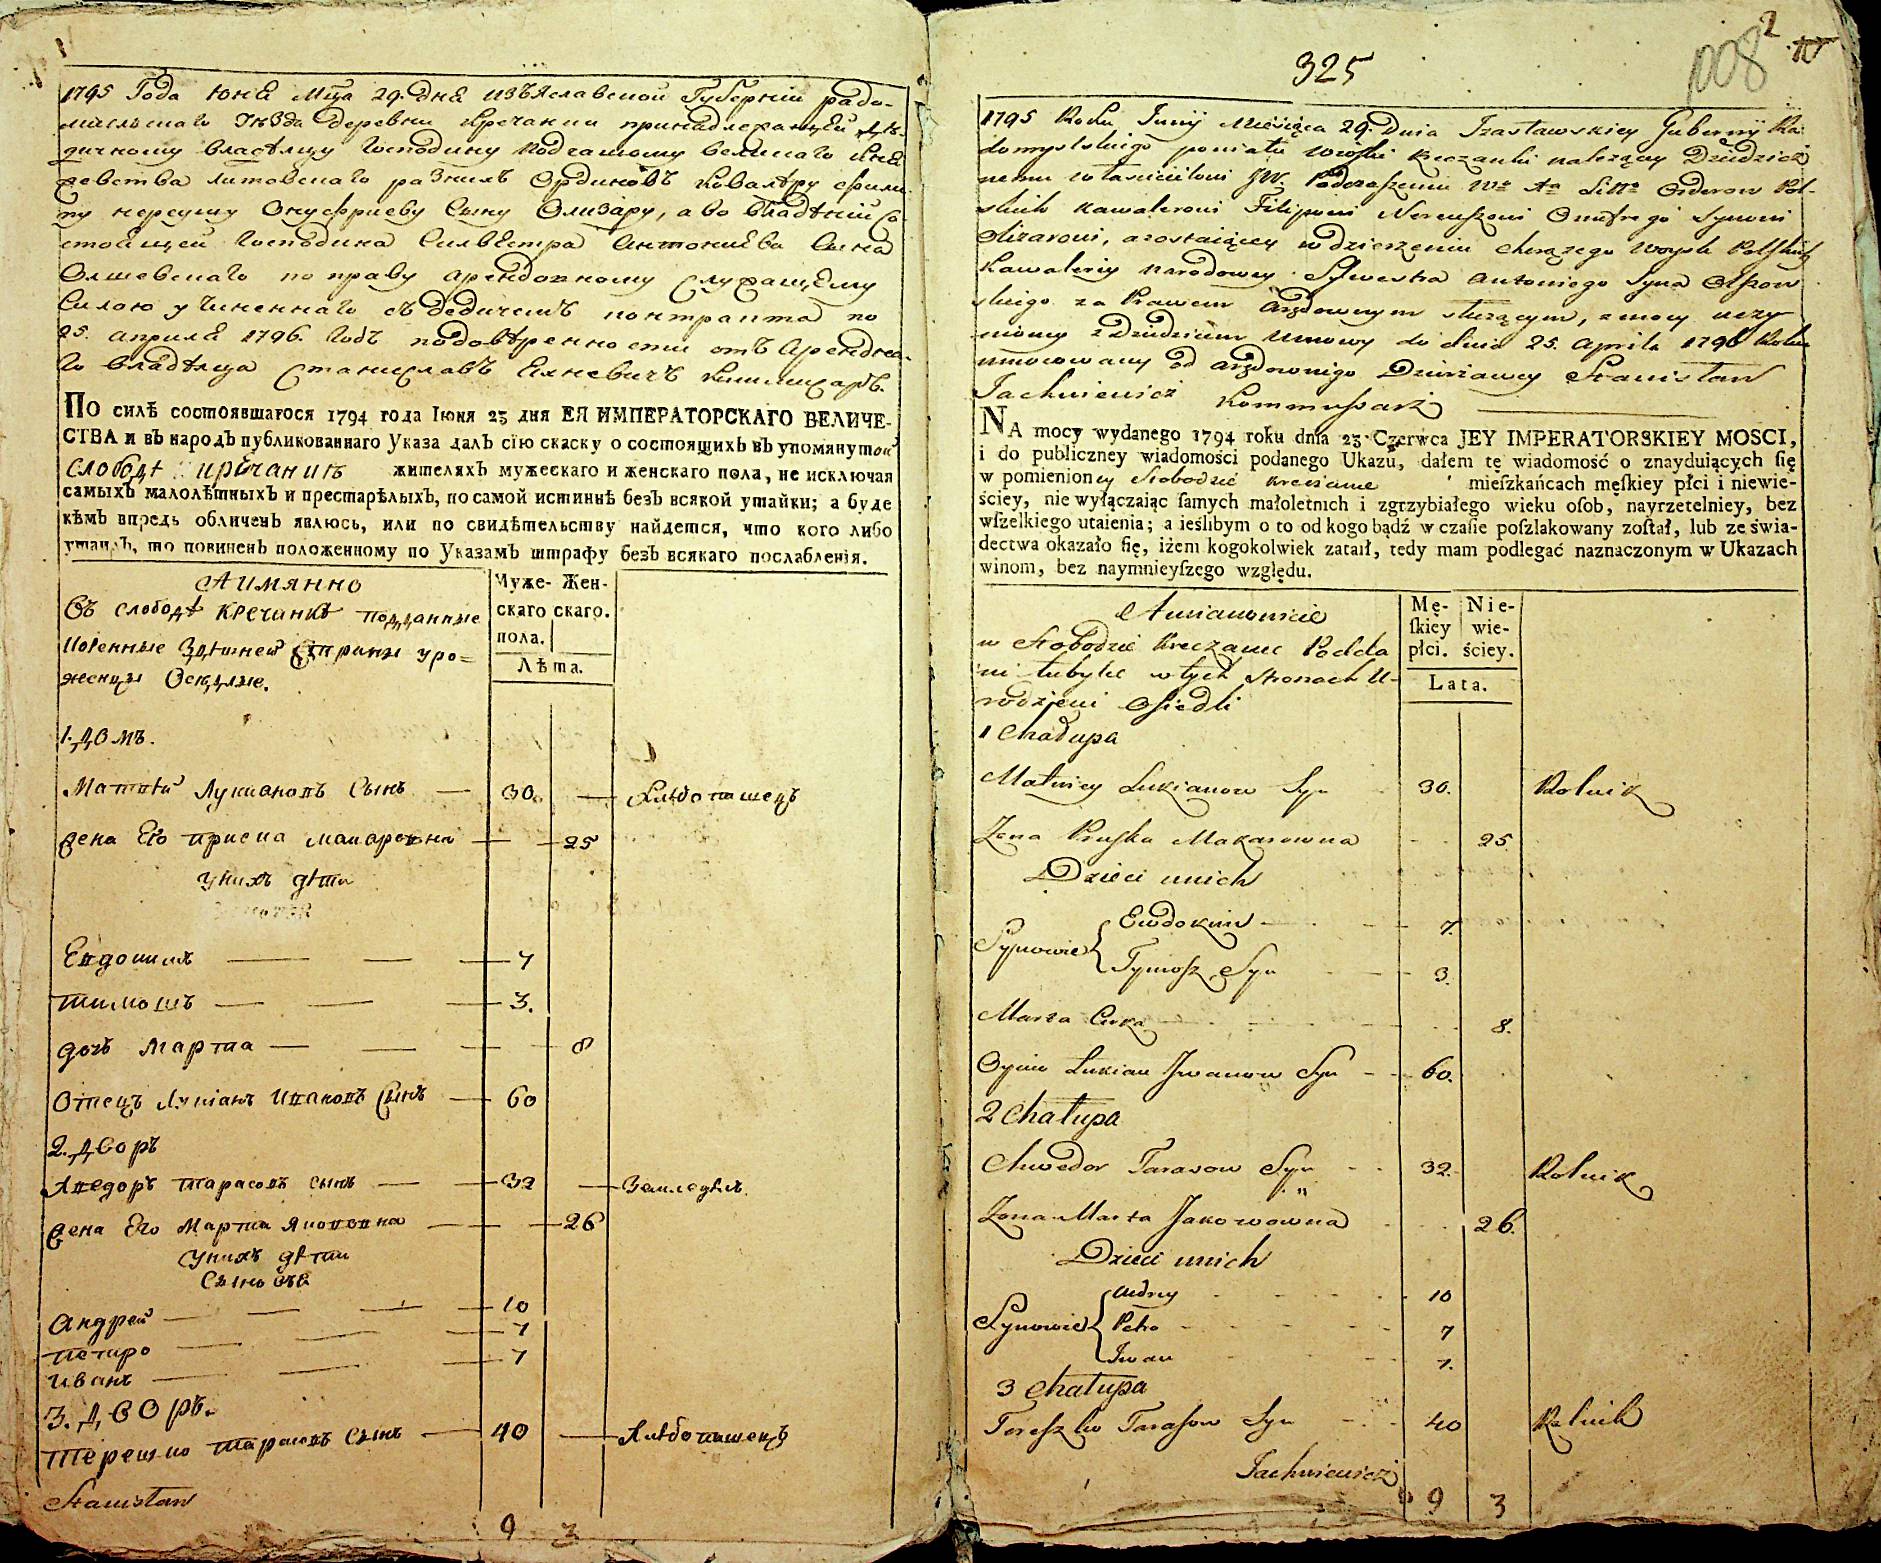 1795 Года Юня Мца 29. дня изъяславской Губерніи радо-
мысльскаго уѣзда деревни Кречанки принадлежащей дѣ-
дичному владѣлцу Господину подчашому великаго Кня
жевства литовскаго разныхъ Ординовъ Кавалѣру Фили
пу нереушу Онуфриеву сыну Олизару, а во владѣніи со
стоящей Господина Силвестра Антониева сына
Олшевскаго по праву арендовному служащему
силою учиненнаго съ дедичемъ контракта по
25. априля 1796. Годъ подовѣренности отъ Арендна-
го владѣлца Станиславъ Яхневичъ Комисаръ.
ПО силѣ состоявшагося 1794 года Іюня 23 дня ЕЯ ИМПЕРАТОРСКАГО ВЕЛИЧЕ-
СТВА и въ народъ публикованнаго Указа далъ сію скаску о состоящихъ въ упомянутой
слободѣ кречанкѣ жителяхъ мужескаго и женскаго пола, не исключая
самыхъ малолѣтныхъ и престарѣлыхъ, по самой истиннѣ безъ всякой утайки; а буде
кѣмъ впредь обличенъ явлюсь, или по свидѣтельству найдется, что кого либо
утаилъ, то повиненъ положенному по Указамъ штрафу безъ всякаго послабленія.
Аимянно
Въ слободѣ кречанкѣ подданные
коренные здѣшней страны уро=
женцы Оседлые.
Муже- Жен-
скаго скаго.
пола.
Лѣта.
1. домъ.
Матвѣй Лукиановъ сынъ 30. Хлѣбопашецъ
жена Его приска макаровна 25
у нихъ дѣти
Евдокимъ 7
тимошъ 3.
дочь Марта 8
Отецъ Лукіянъ Ивановъ сынъ 60
2. дворъ
Хведоръ тарасовъ сынъ 32 Земледѣлъ.
жена Его Марта Якововна 26
у нихъ дѣти
сыновья
Андрей 10
петро 7
иванъ 1
3. дворъ.
терешко тарасовъ сынъ 40 Хлѣбопашецъ
Stanisław
9 3
2
1008
325
1795 Roku Junij Miesiąca 29. Dnia Izasławskiey Gubernij Ra
domyslskiego powiatu wioski Kreczanki należący Dziedzicz
nemu właścicielowi JW. Podczaszemu Wo Xa Litto Orderow Pol-
skich Kawalerowi Filipowi Nereuszowi Onufrego Synowi
Olizarowi, a zostaiącey w dzierżeniu chorążego woysk Polskich
Kawaleriy Narodowey Sylwestra Antoniego Syna Olszow
skiego za Prawem Arędownym służącym, z mocy uczy
nioney z Dziedzicem umowy do dnia 25. Aprila 1796 Roku
umocowany od Arędownego Dzierżawcy Stanisław
Jachniewicz Kommissarz
NA mocy wydanego 1794 roku dnia 23 Czerwca JEY IMPERATORSKIEY MOSCI,
i do publiczney wiadomości podanego Ukazu, dałem tę wiadomość o znayduiących się
w pomienioney Słobodzie Kreczance mieſzkańcach męſkiey płci i niewie-
ściey, nie wyłączaiąc ſamych małoletnich i zgrzybiałego wieku oſob, nayrzetelniey, bez
wſzelkiego utaienia; a ieślibym o to od kogo bądź w czaſie poſzlakowany zoſtał, lub ze świa-
dectwa okazało ſię, iżem kogokolwiek zataił, tedy mam podlegać naznaczonym w Ukazach
winom, bez naymnieyſzego względu.
A mianowicie
w Słobodzie Kreczance Podda
ni tubylce w tych stronach U-
rodzieni Osiedli
Mę- Nie-
ſkiey wie-
płci. ściey.
Lata.
1 Chałupa
Matwiey Lukianow Syn 30. Rolnik
Zona Pryska Makarowna 25
Dzieci u nich
Synowie Ewdokim 7.
Tymosz Syn 3.
Marta Curka 8.
Oyciec Lukian Iwanow Syn 60.
2 Chałupa
Chwedor Tarasow Syn 32. Rolnik
Zona Marta Jakowowna 26.
Dzieci u nich
Andrey 10
Synowie Petro 7
Iwan 1.
3 Chałupa
Tereszko Tarasow Syn 40 Rolnik
Jachniewicz
9 3